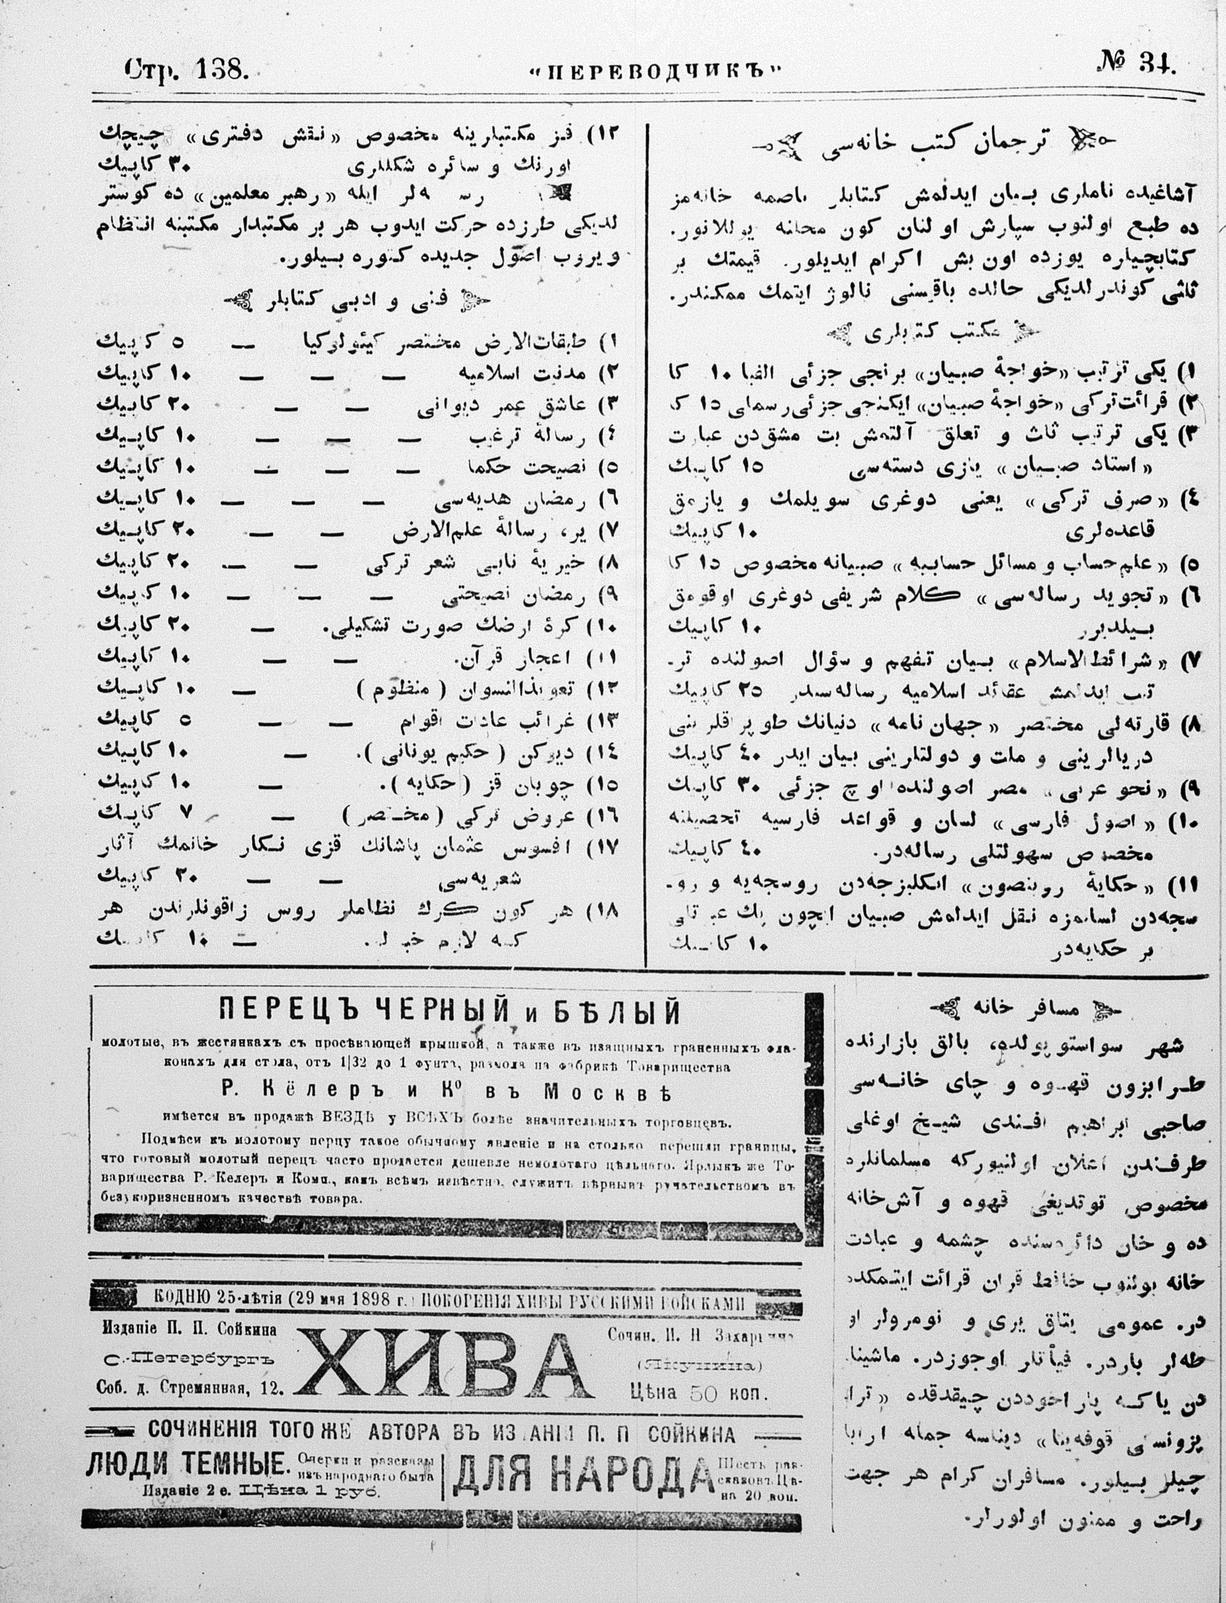 Стр. 138.
"ПЕРЕВОДЧИКЪ"
№ 34.
ترجمان كتب خانه‌سی
آشاغیده ناملری بیان ایدلمش كتابلر باصمه خانه‌مز
ده طبع اولنوب سپارش اولنان كون محلنه یوللانور.
كتابچیاره یوزده اون بش اكرام ایدیلور. قیمتك بر
ثلثی كوندرلدیكی حالده باقیسنی نالوژ ایتمك ممكندر.
مكتب كتابلری
۱) یكی ترتیب «خواجهٔ صبیان» برنجی جزئی الفبا ۱۰ كا
۲) قرائت تركی «خواجهٔ صبیان» ایكنجی جزئی رسملی ۱۵ كا
۳) یكی ترتیب ثلث و تعلق آلتمش بت مشق‌دن عبارت
«استاد صبیان» یازی دسته‌سی ۱۵ كاپیك
٤) «صرف تركی» یعنی دوغری سویلمك و یازمق
قاعده‌لری ۱۰ كاپیك
٥) «علم حساب و مسائل حسابیه» صبیانه مخصوص ۱۵ كا
٦) «تجوید رساله‌سی» كلام شریفی دوغری اوقومق
بیلدیرر ۱۰ كاپیك
٧) «شرائط الاسلام» بیان تفهم و سؤال اصولنده تر-
تیب ایدلمش عقائد اسلامیه رساله‌سیدر ۲۵ كاپیك
۸) قارته‌لی مختصر «جهان نامه» دنیانك طوپراقلرینی
دریالرینی و ملت و دولتلرینی بیان ایدر ٤۰ كاپیك
۹) «نحو عربی» مصر اصولنده اوچ جزئی ۳۰ كاپیك
۱۰) «اصول فارسی» لسان و قواعد فارسیه تحصیلنه
مخصوص سهولتلی رساله‌در. ٤۰ كاپیك
۱۱) «حكایهٔ روبنصون» انكلیزجه‌دن روسجه‌یه و رو-
سجه‌دن لسانمزه نقل ایدلمش صبیان ایچون پك عبرتلی
بر حكایه‌در ۱۰ كاپیك
۱۲) قیز مكتبلرینه مخصوص «نقش دفتری» چیچك
اورنك و سائره شكللری ۳۰ كاپیك
ایله «رهبر معلمین» ده كوستر
لدیكی طرزده حركت ایدوب هر بر مكتبدار مكتبنه انتظام
ویروب اصول جدیده كتوره بیلور.
فنی و ادبی كتابلر
۱) طبقات الارض مختصر كیئولوكیا — ٥ كاپیك
۲) مدنیت اسلامیه — — — ۱۰ كاپیك
۳) عاشق عمر دیوانی — — ۲۰ كاپیك
٤) رسالهٔ ترغیب — — — ۱۰ كاپیك
٥) نصیحت حكما — — — ۱۰ كاپیك
٦) رمضان هدیه‌سی — — — ۱۰ كاپیك
٧) یر، رسالهٔ علم الارض — — ۲۰ كاپیك
۸) خیریهٔ نابی شعر تركی — — ۲۰ كاپیك
۹) رمضان نصیحتی — — — ۱۰ كاپیك
۱۰) كرهٔ ارضك صورت تشكیلی. — ۲۰ كاپیك
۱۱) اعجاز قرآن. — — ۱۰ كاپیك
۱۲) تعویذ النسوان (منظوم) — ۱۰ كاپیك
۱۳) غرائب عادات اقوام — — ٥ كاپیك
۱٤) دیوكن (حكیم یونانی). — ۱۰ كاپیك
۱٥) چوبان قز (حكایه). — ۱۰ كاپیك
۱٦) عروض تركی (مختصر) — ۷ كاپیك
۱۷) افسوس عثمان پاشانك قزی نكار خانمك آثار
شعریه‌سی — — ۲۰ كاپیك
۱۸) هر كون كرك نظاملر روس زاقونلرندن هر
كسه لازم — ۱۰ كاپیك
ПЕРЕЦЪ ЧЕРНЫЙ и БѢЛЫЙ
молотые, въ жестянкахъ съ просѣвающей крышкой, а также въ изящныхъ граненныхъ фла-
конахъ для стола, отъ 1/32 до 1 фунта, размола на фабрикѣ Товарищества
Р. Кёлеръ и Ко въ Москвѣ
имѣется въ продажѣ ВЕЗДѢ у ВСѢХЪ болѣе значительныхъ торговцевъ.
Подмѣси къ молотому перцу такое обычному явленіе и на столько перешли границы,
что готовый молотый перецъ часто продается дешевле немолотаго цѣльнаго. Ярлыкъ же То-
варищества Р. Келеръ и Комп., какъ всѣмъ извѣстно, служитъ вѣрнымъ ручательствомъ въ
безукоризненномъ качествѣ товара.
КО ДНЮ 25-лѣтія (29 мая 1898 г.) ПОКОРЕНІЯ ХИВЫ РУССКИМИ ВОЙСКАМИ
Изданіе П. П. Сойкина
С.-Петербургъ
Соб. д. Стремянная, 12.
ХИВА
Сочин. И. Н Захарьина
(Якунина)
Цѣна 50 коп.
СОЧИНЕНІЯ ТОГО ЖЕ АВТОРА ВЪ ИЗДАНІИ П. П СОЙКИНА
ЛЮДИ ТЕМНЫЕ. Очерки и разсказы
изъ народнаго быта
Изданіе 2 е. Цѣна 1 руб.
ДЛЯ НАРОДА Шесть раз-
сказовъ. Цѣ-
на 20 коп.
مسافر خانه
شهر سواستوپولده، بالق بازارنده
طرابزون قهوه و چای خانه‌سی
صاحبی ابراهیم افندی شیخ اوغلی
طرفندن اعلان اولنیوركه مسلمانلره
مخصوص توتدیغی قهوه و آش‌خانه
ده و خان دائره‌سنده چشمه و عبادت
خانه بولنوب حافظ قران قرائت ایتمكده
در. عمومی یتاق یری و نومرولر او
طه‌لر باردر. فیأتلر اوجوزدر. ماشینا-
دن یاكه پاراخوددن چیقدقده «ترا-
پزونسكی قوفه‌ینا» دیناسه جمله ارابا
چیلر بیلور. مسافران كرام هر جهت
راحت و ممنون اولورلر.